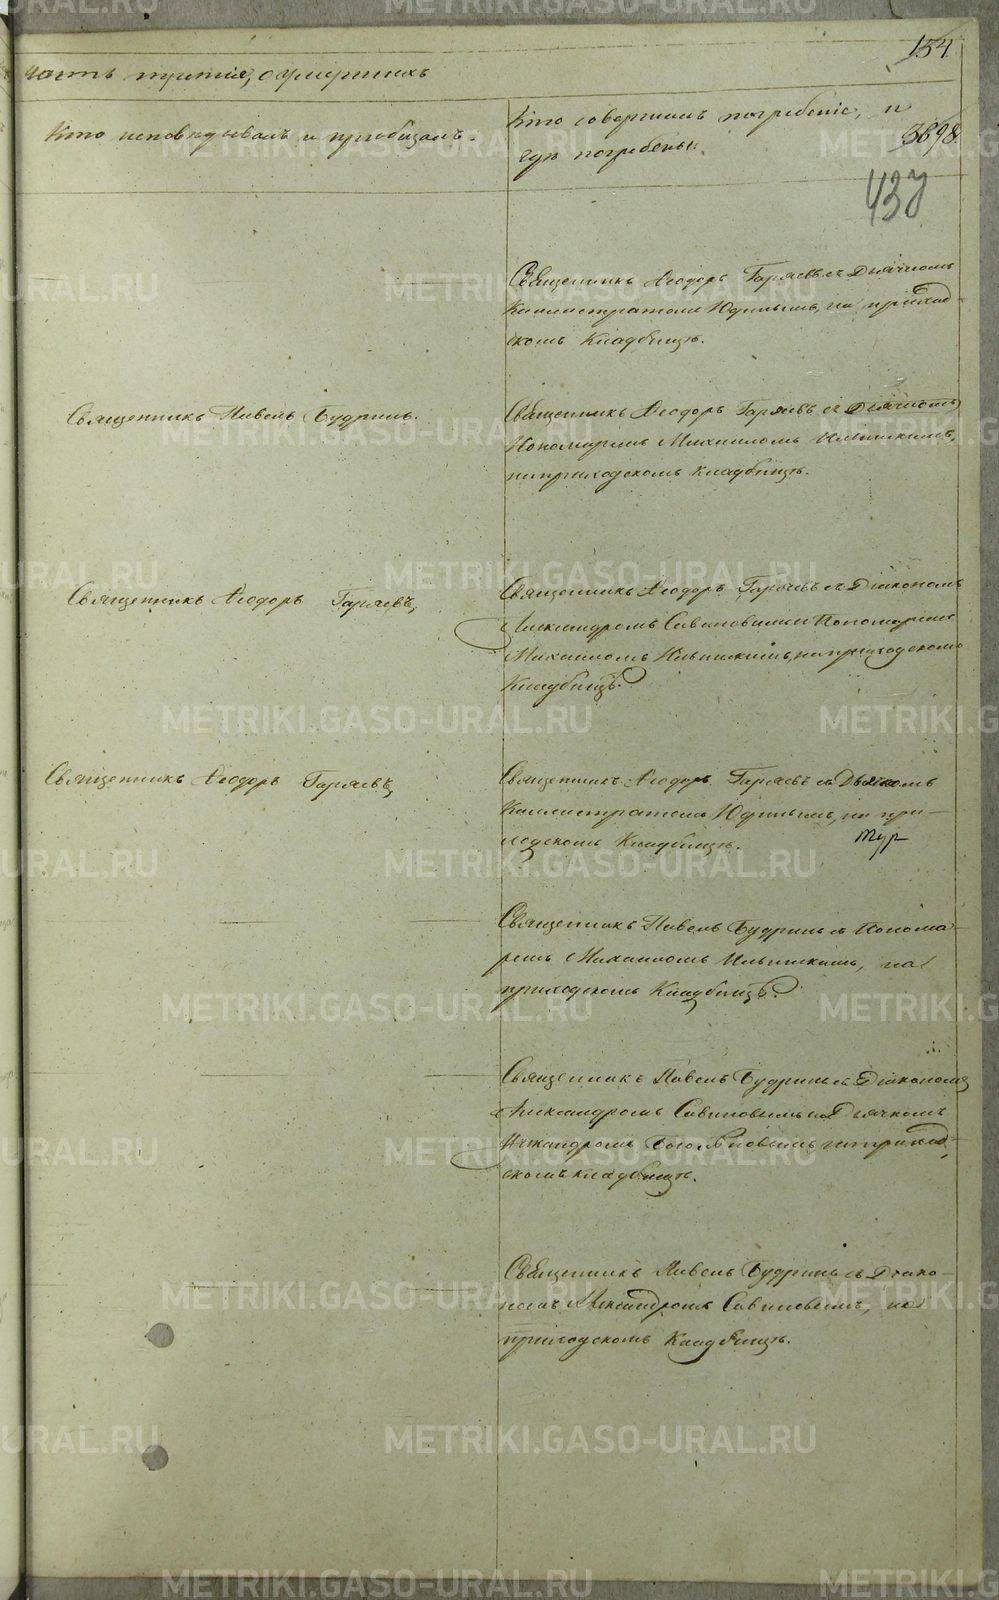 154.
часть третія, о умершихъ
Кто исповѣдывалъ и пріобщалъ.
Кто совершалъ погребеніе, и
гдѣ погребены.
3698.
437
Священникъ Ѳеодоръ Гаряевъ съ Дьячкомъ
Каллистратомъ Юдинымъ, на приход-
скомъ Кладбищѣ.
Священникъ Павелъ Будринъ.
Священникъ Ѳеодоръ Гаряевъ съ
Пономаремъ Михаиломъ Ильинскимъ,
на приходскомъ кладбищѣ.
Священникъ Ѳеодоръ Гаряевъ,
Священникъ Ѳеодоръ Гаряевъ съ Діакономъ
Александромъ Савиновымъ и Пономаремъ
Михаиломъ Ильинскимъ, на приходскомъ
Кладбищѣ.
Священникъ Ѳеодоръ Гаряевъ,
Священникъ Ѳеодоръ Гаряевъ съ Дьячкомъ
Каллистратомъ Юдинымъ, на при-
ходскомъ Кладбищѣ.
Тур
Священникъ Павелъ Будринъ съ Понома-
ремъ Михаиломъ Ильинскимъ, на
приходскомъ Кладбищѣ.
Священникъ Павелъ Будринъ съ Діакономъ
Александромъ Савиновымъ и Дьячкомъ
Никандромъ Боголѣповымъ, на приход-
скомъ кладбищѣ.
Священникъ Павелъ Будринъ съ Діако-
номъ Александромъ Савиновымъ, на
приходскомъ Кладбищѣ.
METRIKI.GASO-URAL.RU